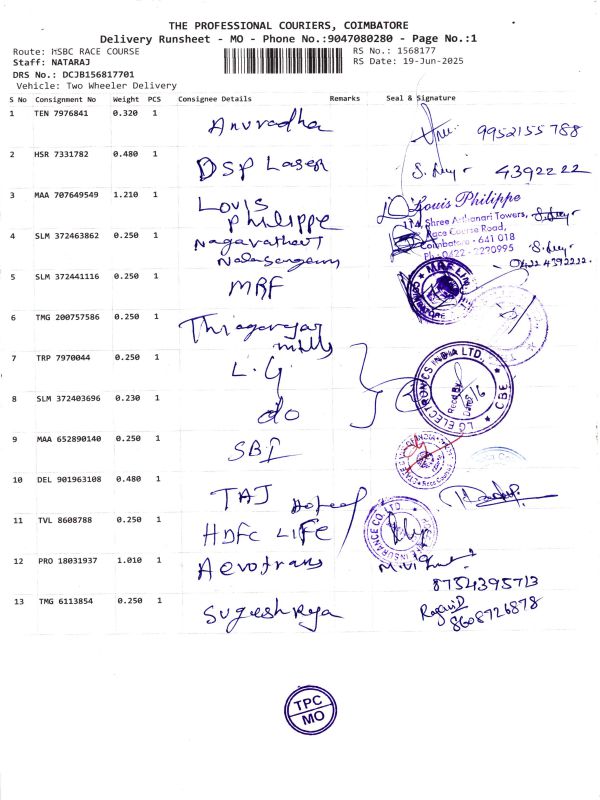 THE PROFESSIONAL COURIERS, COIMBATORE
Delivery Runsheet - MO - Phone No.:9047080280 - Page No.:1
Route: HSBC RACE COURSE
RS No.: 1568177
Staff: NATARAJ
RS Date: 19-Jun-2025
DRS No.: DCJB156817701
Vehicle: Two Wheeler Delivery
S No Consignment No Weight PCS Consignee Details Remarks Seal & Signature
1 TEN 7976841 0.320 1 Anuradha 9952155788
2 HSR 7331782 0.480 1 DSP Laser 4392222
3 MAA 707649549 1.210 1 Louis Philippe
Louis Philippe
114, Shree Arthanari Towers,
Race Course Road,
Coimbatore - 641 018
Ph: 0422 - 2220995
4 SLM 372463862 0.250 1 0422 4392222
5 SLM 372441116 0.250 1 MRF
6 TMG 200757586 0.250 1 Thiagarajar mills
7 TRP 7970044 0.250 1 L.G
LG ELECTRONICS INDIA LTD., CBE
8 SLM 372403696 0.230 1 do
9 MAA 652890140 0.250 1 SBI
10 DEL 901963108 0.480 1 TAJ Hotel
11 TVL 8608788 0.250 1 HDFC LIFE
INSURANCE CO. LTD.
12 PRO 18031937 1.010 1 Aerotrans
8754395713
13 TMG 6113854 0.250 1
8608726878
TPC
MO